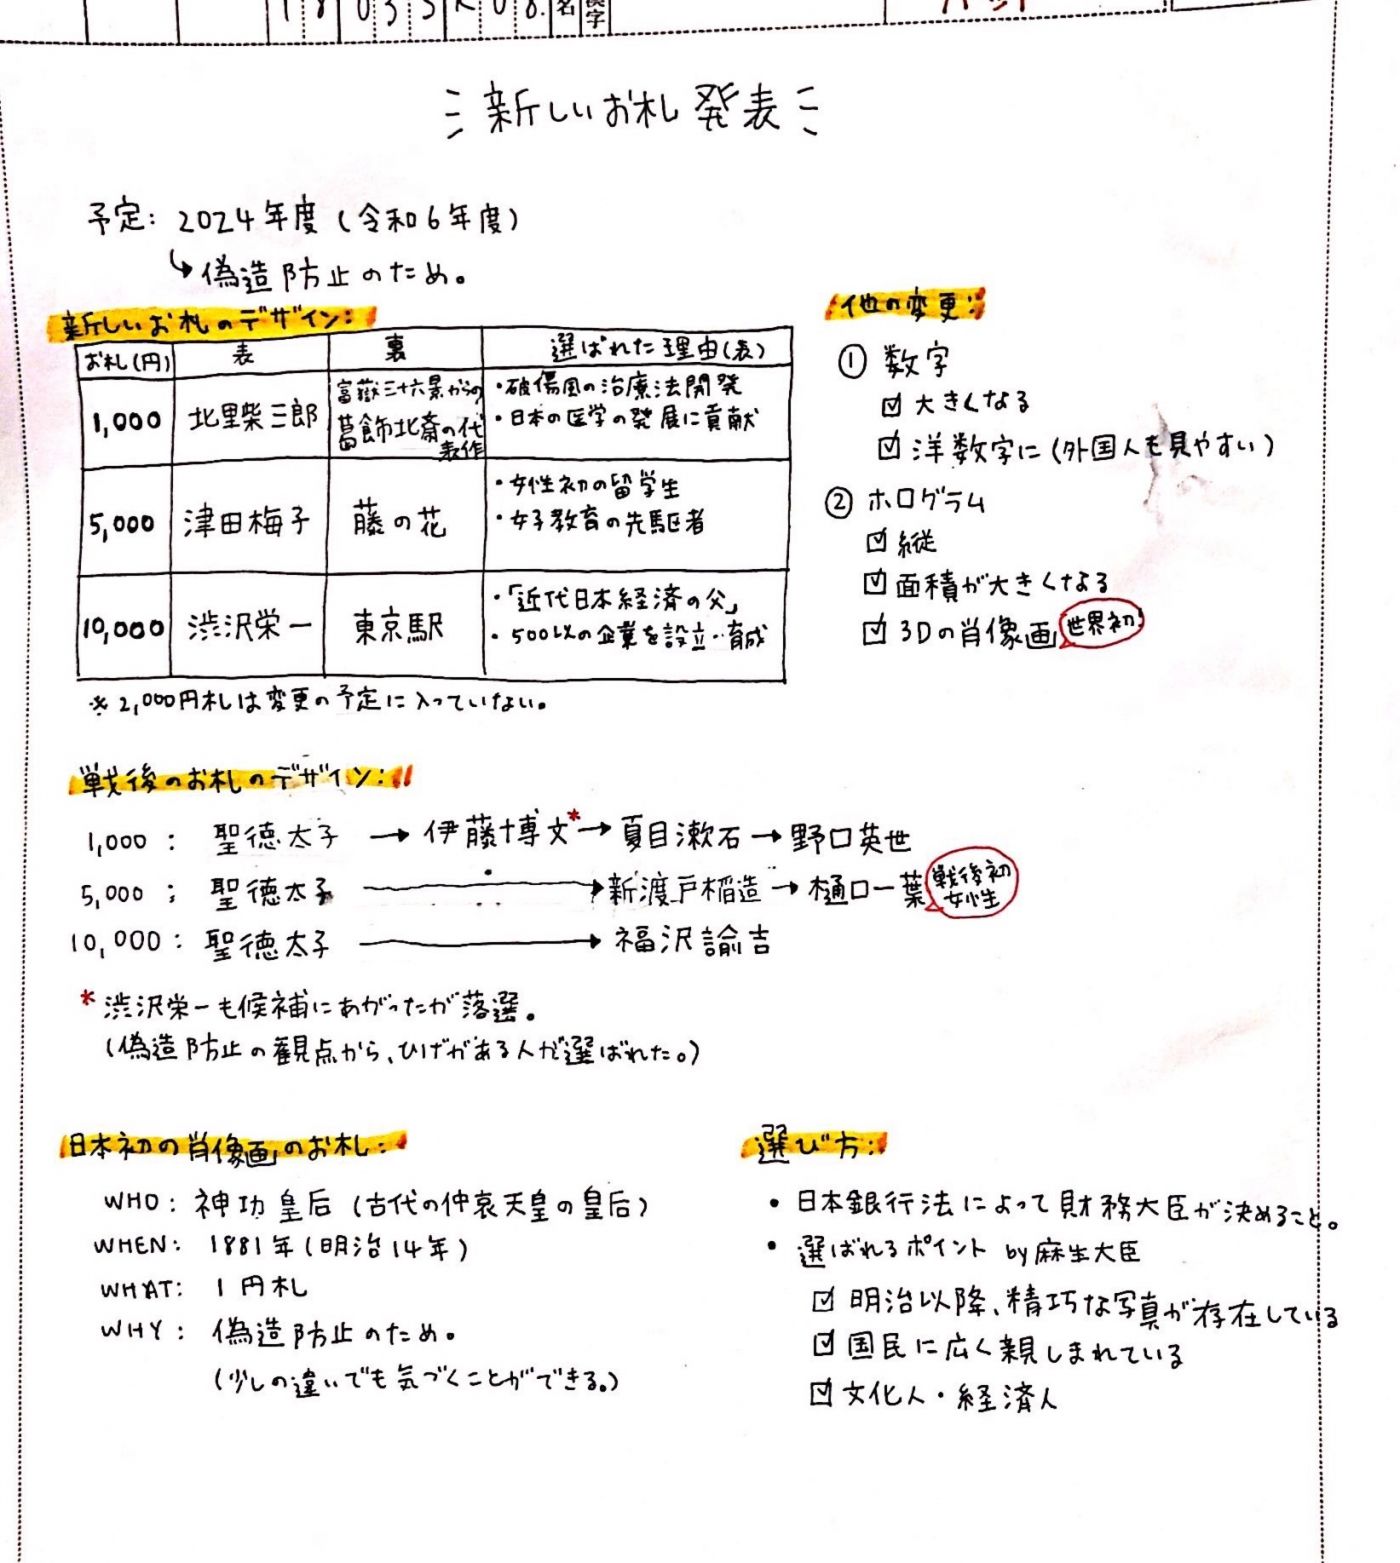 名 漢字
新しいお札発表
予定: 2024年度(令和6年度)
↳偽造防止のため。
新しいお札のデザイン:
お札(円) 表 裏 選ばれた理由(表)
1,000 北里柴三郎 富嶽三十六景からの葛飾北斎の代表作 ・破傷風の治療法開発
・日本の医学の発展に貢献
5,000 津田梅子 藤の花 ・女性初の留学生
・女子教育の先駆者
10,000 渋沢栄一 東京駅 ・「近代日本経済の父」
・500以の企業を設立・育成
※2,000円札は変更の予定に入っていない。
他の変更:
① 数字
☑ 大きくなる
☑ 洋数字に(外国人も見やすい)
② ホログラム
☑ 縦
☑ 面積が大きくなる
☑ 3Dの肖像画 世界初!
戦後のお札のデザイン:
1,000: 聖徳太子 → 伊藤博文* → 夏目漱石 → 野口英世
5,000: 聖徳太子 → 新渡戸稲造 → 樋口一葉 戦後初女性
10,000: 聖徳太子 → 福沢諭吉
* 渋沢栄一も候補にあがったが落選。
(偽造防止の観点から、ひげがある人が選ばれた。)
日本初の肖像画のお札:
WHO: 神功皇后(古代の仲哀天皇の皇后)
WHEN: 1881年(明治14年)
WHAT: 1円札
WHY: 偽造防止のため。
(少しの違いでも気づくことができる。)
選び方:
・日本銀行法によって財務大臣が決めること。
・選ばれるポイント by麻生大臣
☑ 明治以降、精巧な写真が存在している
☑ 国民に広く親しまれている
☑ 文化人・経済人